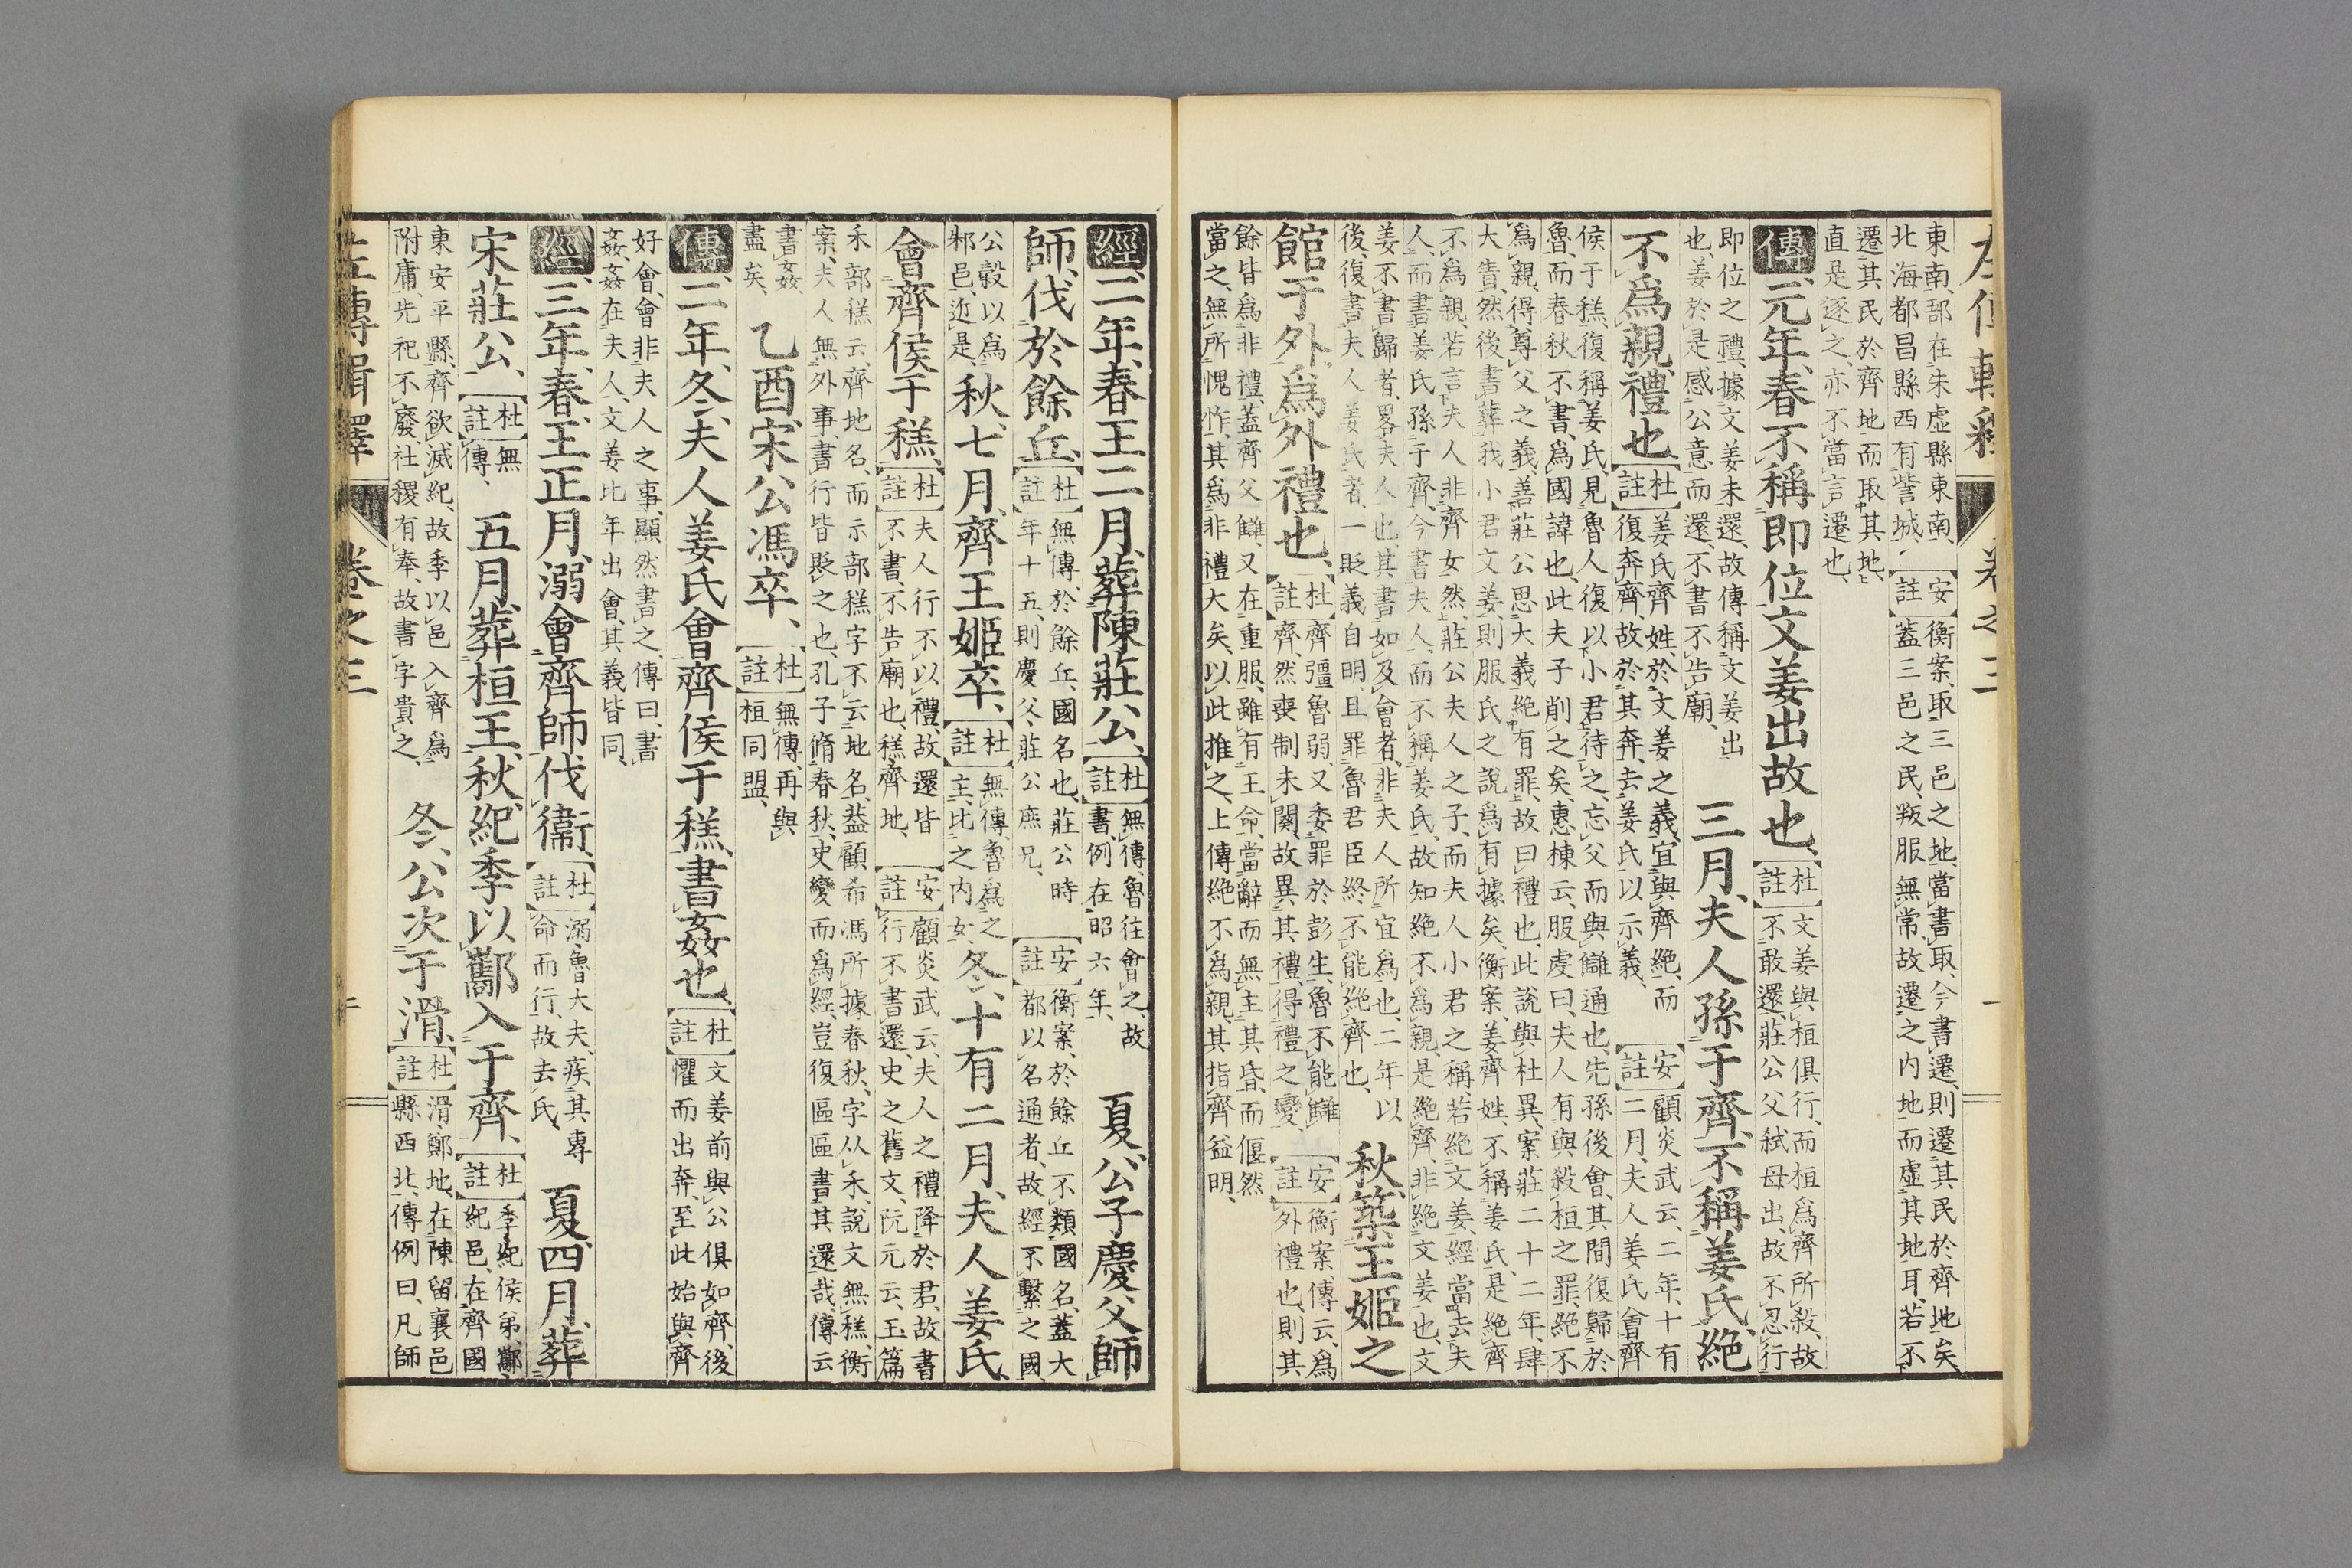 左傳輯釋 卷之三
東南、郚在朱虛縣東南、
北海都昌縣西有訾城、
安註
衡案、取三邑之地、當書取、今書遷、則遷其民於齊地矣、
蓋三邑之民、叛服無常、故遷之内地、而虛其地耳、若不
遷其民於齊地、而取其地、
直是逐之、亦不當言遷也、
傳 元年、春、不稱即位、文姜出故也、
杜註
文姜與桓俱行、而桓爲齊所殺、故
不敢還、莊公父弒母出、故不忍行
即位之禮、據文姜未還、故傳稱文姜出
也、姜於是感公意而還、不書不告廟、
三月、夫人孫于齊、不稱姜氏、絶
不爲親、禮也、
杜註
姜氏齊姓、於文姜之義、宜與齊絶、而
復奔齊、故於其奔、去姜氏以示義、
安註
顧炎武云、二年、十有
二月、夫人姜氏會齊
侯于禚、復稱姜氏、見魯人復以小君待之、忘父而與讎通也、先孫後會、其間復歸於
魯、而春秋不書、爲國諱也、此夫子削之矣、惠棟云、服虔曰、夫人有與殺桓之罪、絶不
爲親、得尊父之義、善莊公思大義絶有罪、故曰禮也、此說與杜異、案莊二十二年、肆
大眚、然後書葬我小君文姜、則服氏之說爲有據矣、衡案、姜齊姓、不稱姜氏、是絶齊
不爲親、若言夫人非齊女然、莊公夫人之子、而夫人小君之稱、若絶文姜、經當去夫
人、而書姜氏孫于齊、今書夫人、而不稱姜氏、故知絶不爲親、是絶齊、非絶文姜也、文
姜不書歸者、畧夫人也、其書如及會者、非夫人所宜爲也、二年以
後、復書夫人姜氏者、一貶義自明、且罪魯君臣終不能絶齊也、
秋、築王姬之
館于外、爲外禮也、
杜註
齊彊魯弱、又委罪於彭生、魯不能讎
齊、然喪制未闋、故異其禮、得禮之變、
安註
衡案、傳云、爲
外禮也、則其
餘皆爲非禮、蓋齊父讎、又在重服、雖有王命、當辭而無主其昏、而偃然
當之、無所愧怍、其爲非禮大矣、以此推之、上傳絶不爲親、其指齊益明、
經 二年、春、王二月、葬陳莊公、
杜註
無傳、魯往會之、故
書、例在昭六年、
夏、公子慶父師
師、伐於餘丘、
杜註
無傳、於餘丘、國名也、莊公時
年十五、則慶父、莊公庶兄、
安註
衡案、於餘丘不類國名、蓋大
都以名通者、故經不繫之國、
公羖以爲
邾邑、近是、
秋、七月、齊王姬卒、
杜註
無傳、魯爲之
主、比之内女、
冬、十有二月、夫人姜氏
會齊侯于禚、
杜註
夫人行不以禮、故還皆
不書、不告廟也、禚、齊地、
安註
顧炎武云、夫人之禮降於君、故書
行不書還、史之舊文、阮元云、玉篇
禾部禚云、齊地名、而示部䄕字不云地名、葢顧希馮所據春秋、字从禾、說文無禚、衡
案、夫人無外事、書行皆貶之也、孔子脩春秋、史變而爲經、豈復區區書其還哉、傳云
書姦
盡矣、
乙酉、宋公馮卒、
杜註
無傳、再與
桓同盟、
傳 二年、冬、夫人姜氏會齊侯于禚、書姦也、
杜註
文姜前與公俱如齊、後
懼而出奔、至此始與齊
好會、會非夫人之事、顯然書之、傳曰、書
姦、姦在夫人、文姜比年出會、其義皆同、
經 三年、春、王正月、溺會齊師、伐衞、
杜註
溺、魯大夫、疾其專
命而行、故去氏、
夏、四月、葬
宋莊公、
杜註
無
傳、
五月、葬桓王、秋、紀季以酅入于齊、
杜註
季、紀侯弟、酅、
紀邑、在齊國
東安平縣、齊欲滅紀、故季以邑入齊爲
附庸、先祀不廢、社稷有奉、故書字貴之、
冬、公次于滑、
杜註
滑、鄭地、在陳留襄邑
縣西北、傳例曰、凡師
左傳輯釋 卷之三